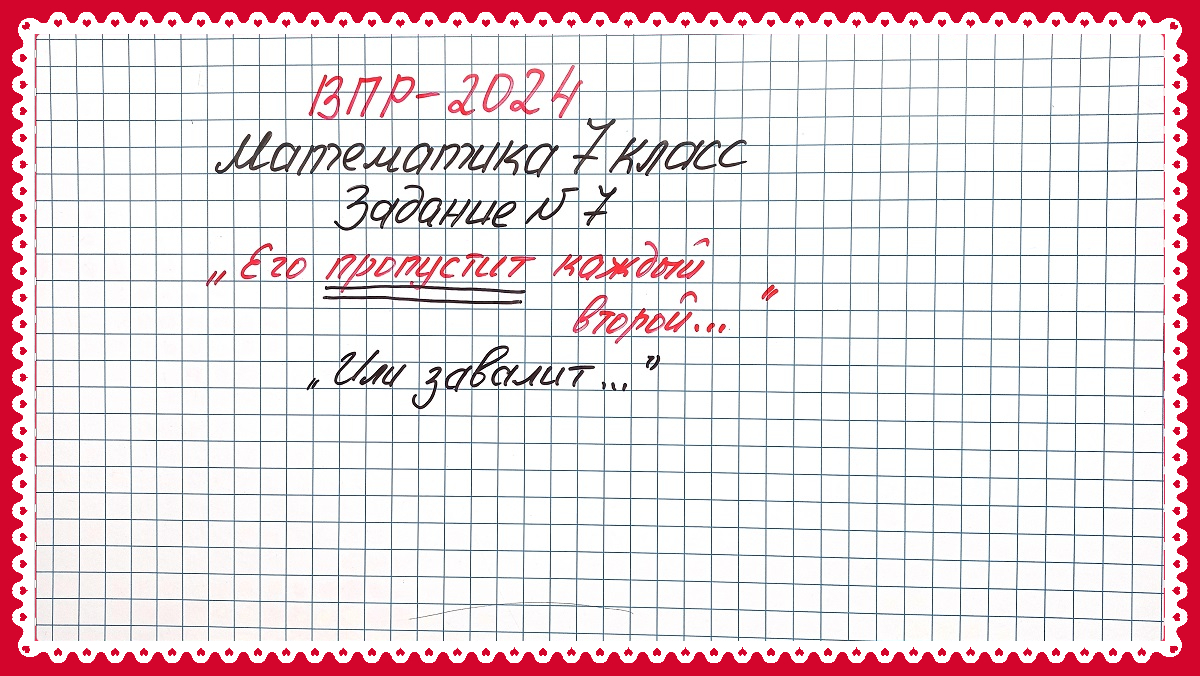 ВПР-2024
Математика 7 класс
Задание № 7
„Его пропустит каждый
второй... "
„Или завалит..."